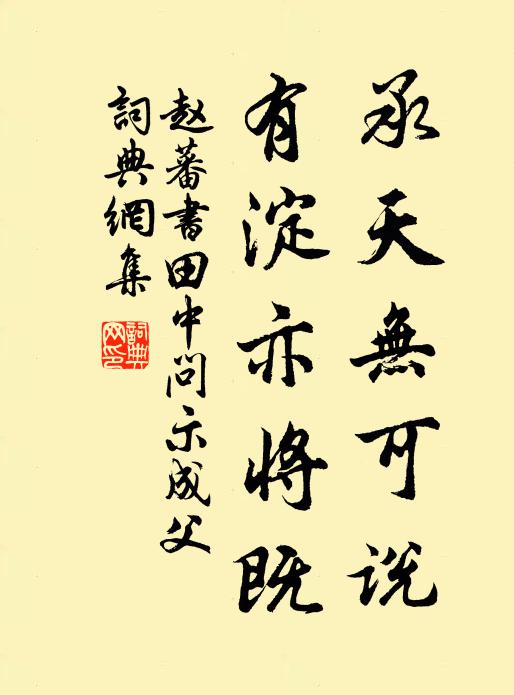 承天無可说
有淀亦将既
赵蕃書田中问示成父
詞典網集
詞典网印